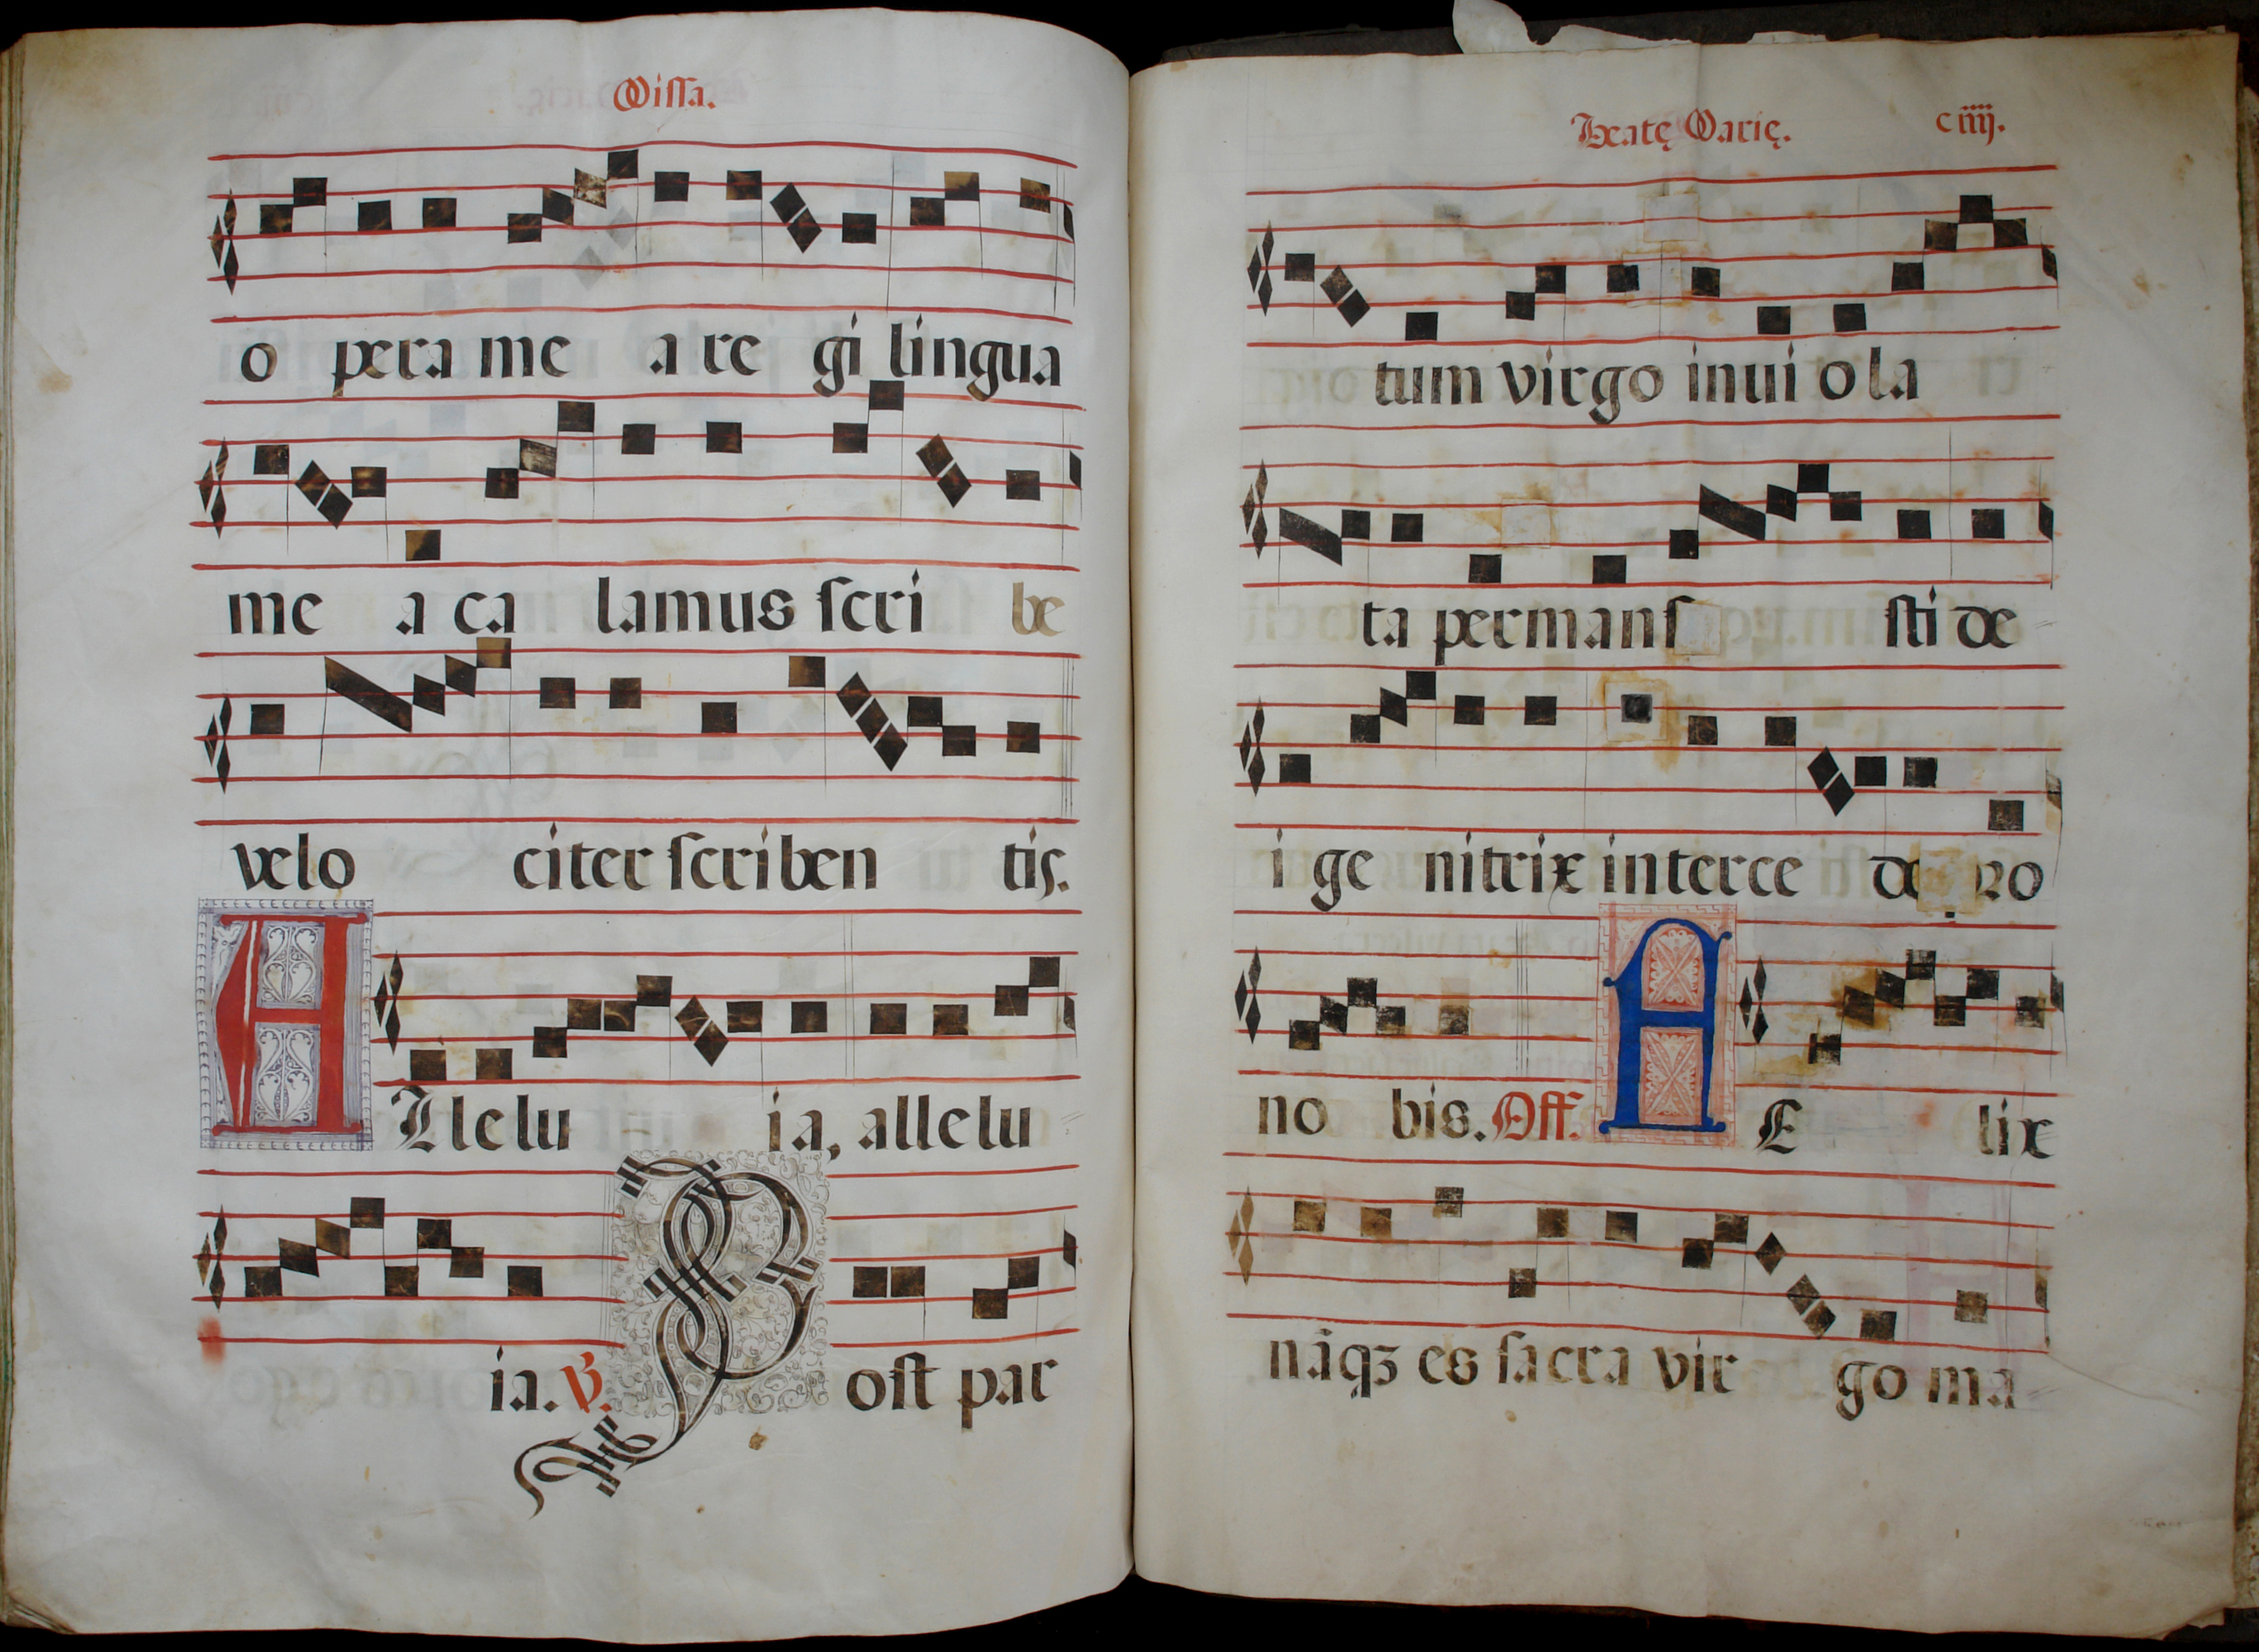 Missa.
o pera me a re gi lingua
me a ca lamus scri be
velo citer scriben tis.
Allelu ia, allelu
ia. ℣. Post par
Beatę Marię. c iiij.
tum virgo inui o la
ta permans sti de
i ge nitrix interce de pro
no bis. Off. FE lix
nāqꝫ es sacra vir go ma